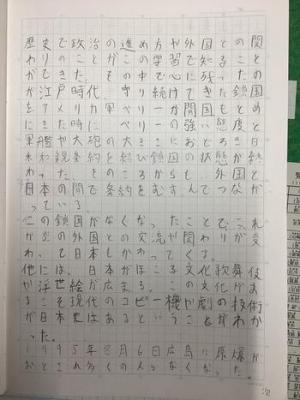 歴史で政治の進め方や外国との関
わりのことがこの学習で知ることの
ができた。その中で心に残ったの
が江戸時代、守り続けてきた鎖国
をアメリカ軍ペリーが開国をもとめ
にきた時に、ペリーの強い態度と
軍艦や大砲の大きさにおどろき日
米和親条約を結び鎖国の状態が終
わった。そのころからも外国と
日本の間で条約をむすんでつなが
っている。
この鎖国がなくなったことで、これ
からの外国との交流や関わりが変
わって日本もかわってくる。
他には、日本がほこる文化歌舞伎
や浮世絵が広まる。この文化が
こそ現代のコピー機や劇の技術
が日本にはあるということがわか
った。
1945年8月6日広島に原爆が
おとされ多くの人がなくなった